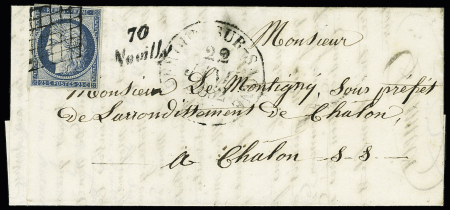 70
Neuilly
SUR-SA
22
Monsieur
Monsieur De Montigny, Sous préfet
de Larrondissement de Chalon,
a Chalon S-S-